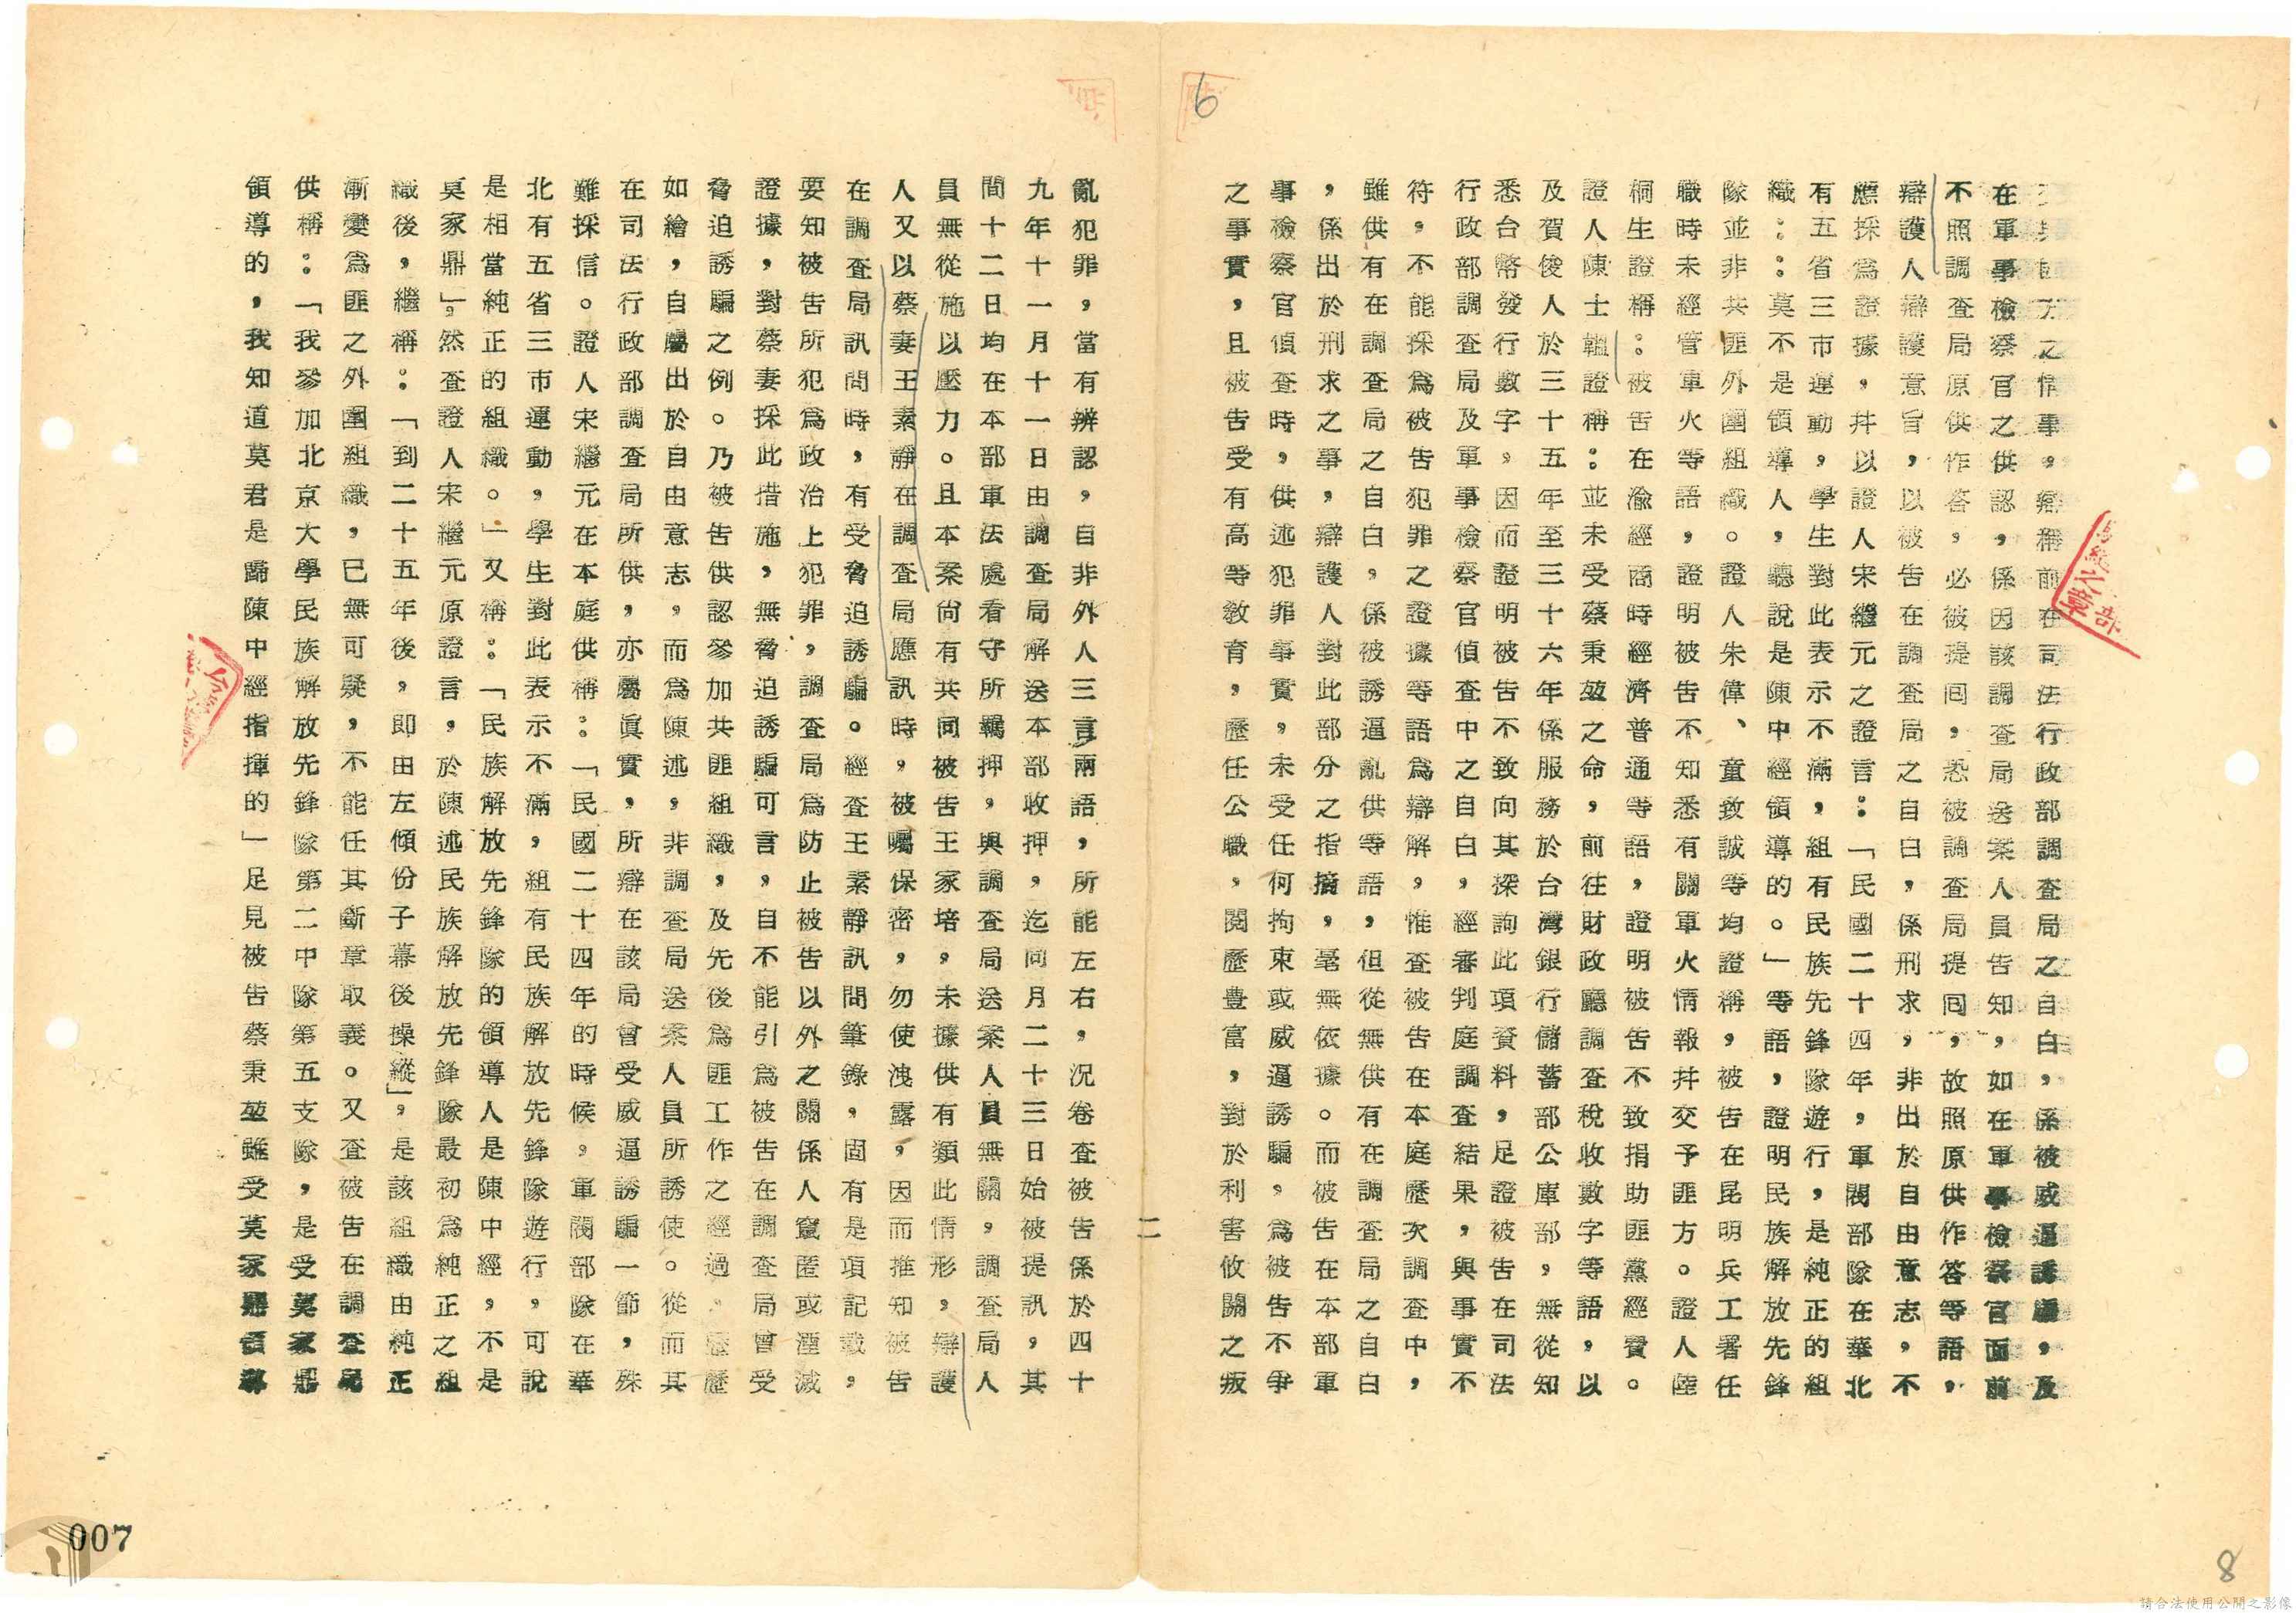 6
方之情事。辯稱前在司法行政部調查局之自白，係被威逼誘騙，及
在軍事檢察官之供認，係因該調查局送案人員告知，如在軍事檢察官面前
不照調查局原供作答，必被提囘，恐被調查局提囘，故照原供作答等語，
辯護人辯護意旨，以被告在調查局之自白，係刑求，非出於自由意志，不
應採爲證據。幷以證人宋繼元之證言：「民國二十四年，軍閥部隊在華北
有五省三市運動，學生對此表示不滿，組有民族先鋒隊遊行，是純正的組
織：：莫不是領導人，聽說是陳中經領導的。」等語，證明民族解放先鋒
隊並非共匪外圍組織。證人朱偉、童致誠等均證稱，被告在昆明兵工署任
職時未經管軍火等語，證明被告不知悉有關軍火情報幷交予匪方。證人陸
桐生證稱：被告在渝經商時經濟普通等語，證明被告不致捐助匪黨經費。
證人陳士韞證稱：並未受蔡秉堃之命，前往財政廳調查稅收數字等語，以
及賀俊人於三十五年至三十六年係服務於台灣銀行儲蓄部公庫部，無從知
悉台幣發行數字。因而證明被告不致向其探詢此項資料，足證被告在司法
行政部調查局及軍事檢察官偵查中之自白，經審判庭調查結果，與事實不
符。不能採爲被告犯罪之證據等語爲辯解，惟查被告在本庭歷次調查中，
雖供有在調查局之自白，係被誘逼亂供等語，但從無供有在調查局之自白
，係出於刑求之事，辯護人對此部分之指摘，毫無依據。而被告在本部軍
事檢察官偵查時，供述犯罪事實，未受任何拘束或威逼誘騙。爲被告不爭
之事實，且被告受有高等敎育，歷任公職，閱歷豊富，對於利害攸關之叛
二
亂犯罪，當有辨認，自非外人三言兩語，所能左右，況卷查被告係於四十
九年十一月十一日由調查局解送本部收押，迄同月二十三日始被提訊，其
間十二日均在本部軍法處看守所羈押，與調查局送案人員無關，調查局人
員無從施以壓力。且本案尙有共同被告王家培，未據供有類此情形，辯護
人又以蔡妻王素靜在調查局應訊時，被囑保密，勿使洩露，因而推知被告
在調查局訊問時，有受脅迫誘騙。經查王素靜訊問筆錄，固有是項記載，
要知被告所犯爲政治上犯罪，調查局爲防止被告以外之關係人竄匿或湮滅
證據，對蔡妻採此措施，無脅迫誘騙可言，自不能引爲被告在調查局曾受
脅迫誘騙之例。乃被告供認參加共匪組織，及先後爲匪工作之經過。歷歷
如繪，自屬出於自由意志，而爲陳述，非調查局送案人員所誘使。從而其
在司法行政部調查局所供，亦屬眞實，所辯在該局曾受威逼誘騙一節，殊
難採信。證人宋繼元在本庭供稱：「民國二十四年的時候。軍閥部隊在華
北有五省三市運動，學生對此表示不滿，組有民族解放先鋒隊遊行，可說
是相當純正的組織。」又稱：「民族解放先鋒隊的領導人是陳中經，不是
莫家鼎」。然查證人宋繼元原證言，於陳述民族解放先鋒隊最初爲純正之組
織後，繼稱：「到二十五年後，即由左傾份子幕後操縱」。是該組織由純正
漸變爲匪之外圍組織，已無可疑，不能任其斷章取義。又查被告在調查局
供稱：「我參加北京大學民族解放先鋒隊第二中隊第五支隊，是受莫家鼎
領導的，我知道莫君是歸陳中經指揮的」足見被告蔡秉堃雖受莫家鼎領導
007
8
請合法使用公開之影像